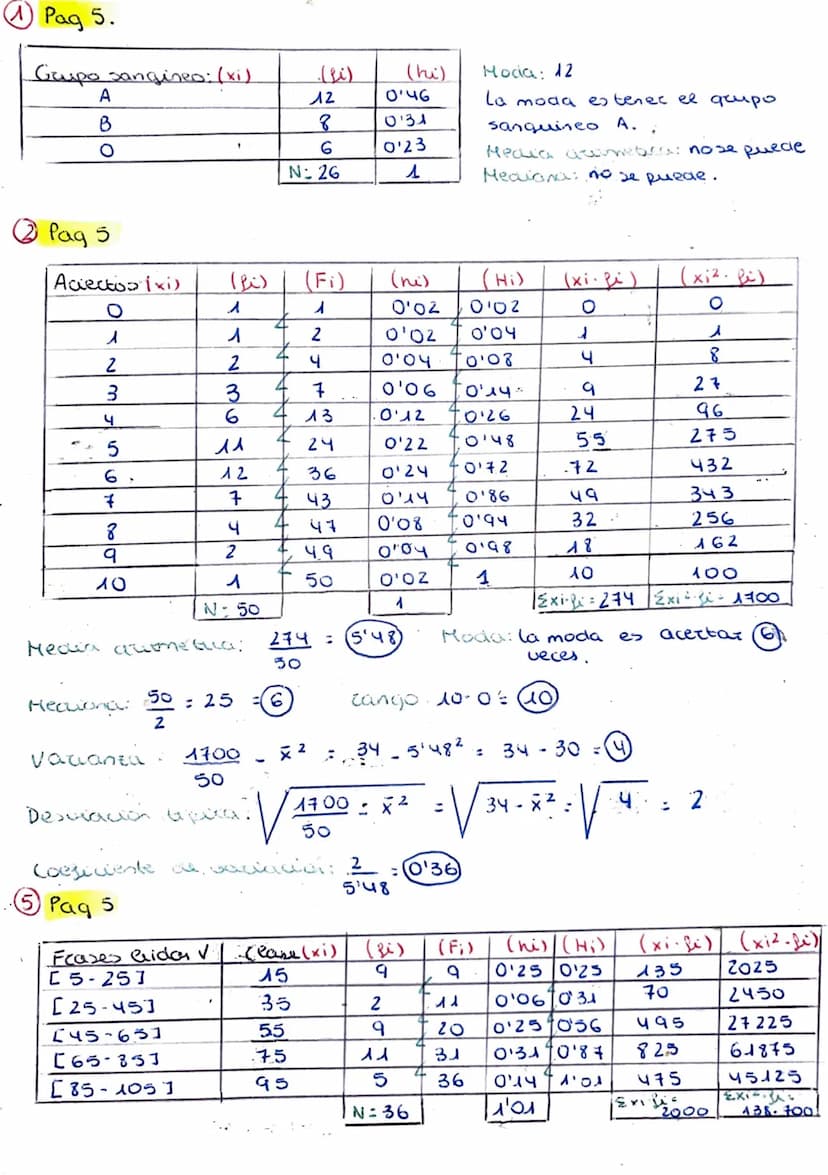 ① Pag 5.
Grupo sangineo: (xi) (fi) (hi)
A 12 0'46
B 8 0'31
O 6 0'23
N= 26 1
Moda: 12
La moda es tener el grupo
sanguineo A.
Media aritmetica: no se puede
Mediana: no se puede.
② Pag 5
Aciertos (xi) (fi) (Fi) (hi) (Hi) (xi·fi) (xi²·fi)
0 1 1 0'02 0'02 0 0
1 1 2 0'02 0'04 1 1
2 2 4 0'04 0'08 4 8
3 3 7 0'06 0'14 9 27
4 6 13 0'12 0'26 24 96
5 11 24 0'22 0'48 55 275
6 12 36 0'24 0'72 72 432
7 7 43 0'14 0'86 49 343
8 4 47 0'08 0'94 32 256
9 2 49 0'04 0'98 18 162
10 1 50 0'02 1 10 100
N= 50 1 Σxi·fi = 274 Σxi²·fi = 1700
Media aritmética: 274/50 = 5'48 Moda: la moda es acertar 6
veces.
Mediana: 50/2 = 25 = 6 rango 10-0 = 10
Varianza: 1700/50 - x̄² = 34 - 5'48² = 34 - 30 = 4
Desviación típica: √1700/50 = x̄² = √34 - x̄² = √4 = 2
Coeficiente de variación: 2/5'48 = 0'36
⑤ Pag 5
Clase (xi) (fi) (Fi) (hi) (Hi) (xi·fi) (xi²·fi)
[5-25] 15 9 9 0'25 0'25 135 2025
[25-45] 35 2 11 0'06 0'31 70 2450
[45-65] 55 9 20 0'25 0'56 495 27225
[65-85] 75 11 31 0'31 0'87 825 61875
[85-105] 95 5 36 0'14 1'01 475 45125
N= 36 1'01 Σxi·fi = 2000 Σxi²·fi = 138.700